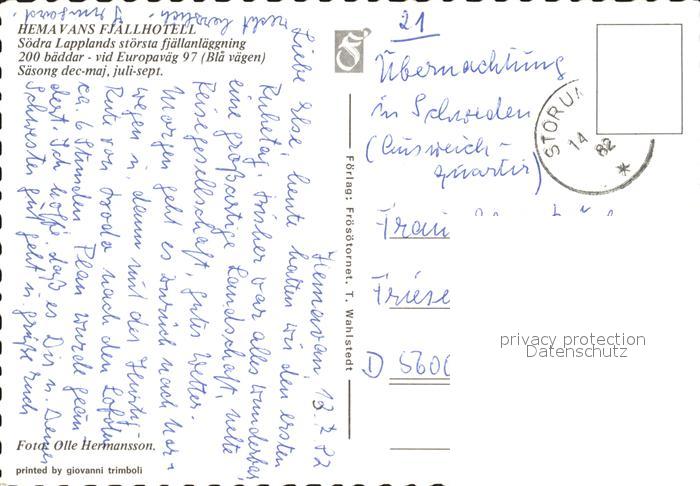 HEMAVANS FJÄLLHOTELL
Södra Lapplands största fjällanläggning
200 bäddar - vid Europaväg 97 (Blå vägen)
Säsong dec-maj, juli-sept.
Hemavan, 13.7.82
Liebe Else, heute hatten wir den ersten
Ruhetag. Bisher war alles wunderbar
eine großartige Landschaft, nette
Reisegesellschaft, gutes Wetter.
Morgen geht es zurück nach Nor-
wegen u. dann mit der Hurtig-
Rute von Bodø nach den Lofoten
ca. 6 Stunden. Plan wurde geän-
dert. Ich hoffe, daß es Dir u. Deiner
Schwester gut geht u. grüße Euch
recht herzlich
Foto: Olle Hermansson.
printed by giovanni trimboli
Förlag: Frösötornet. T. Wahlstedt
21
Übernachtung
in Schweden
(Ausweich-
quartier)
STORUM
14
82
Frau
Friese
D 5600
privacy protection
Datenschutz